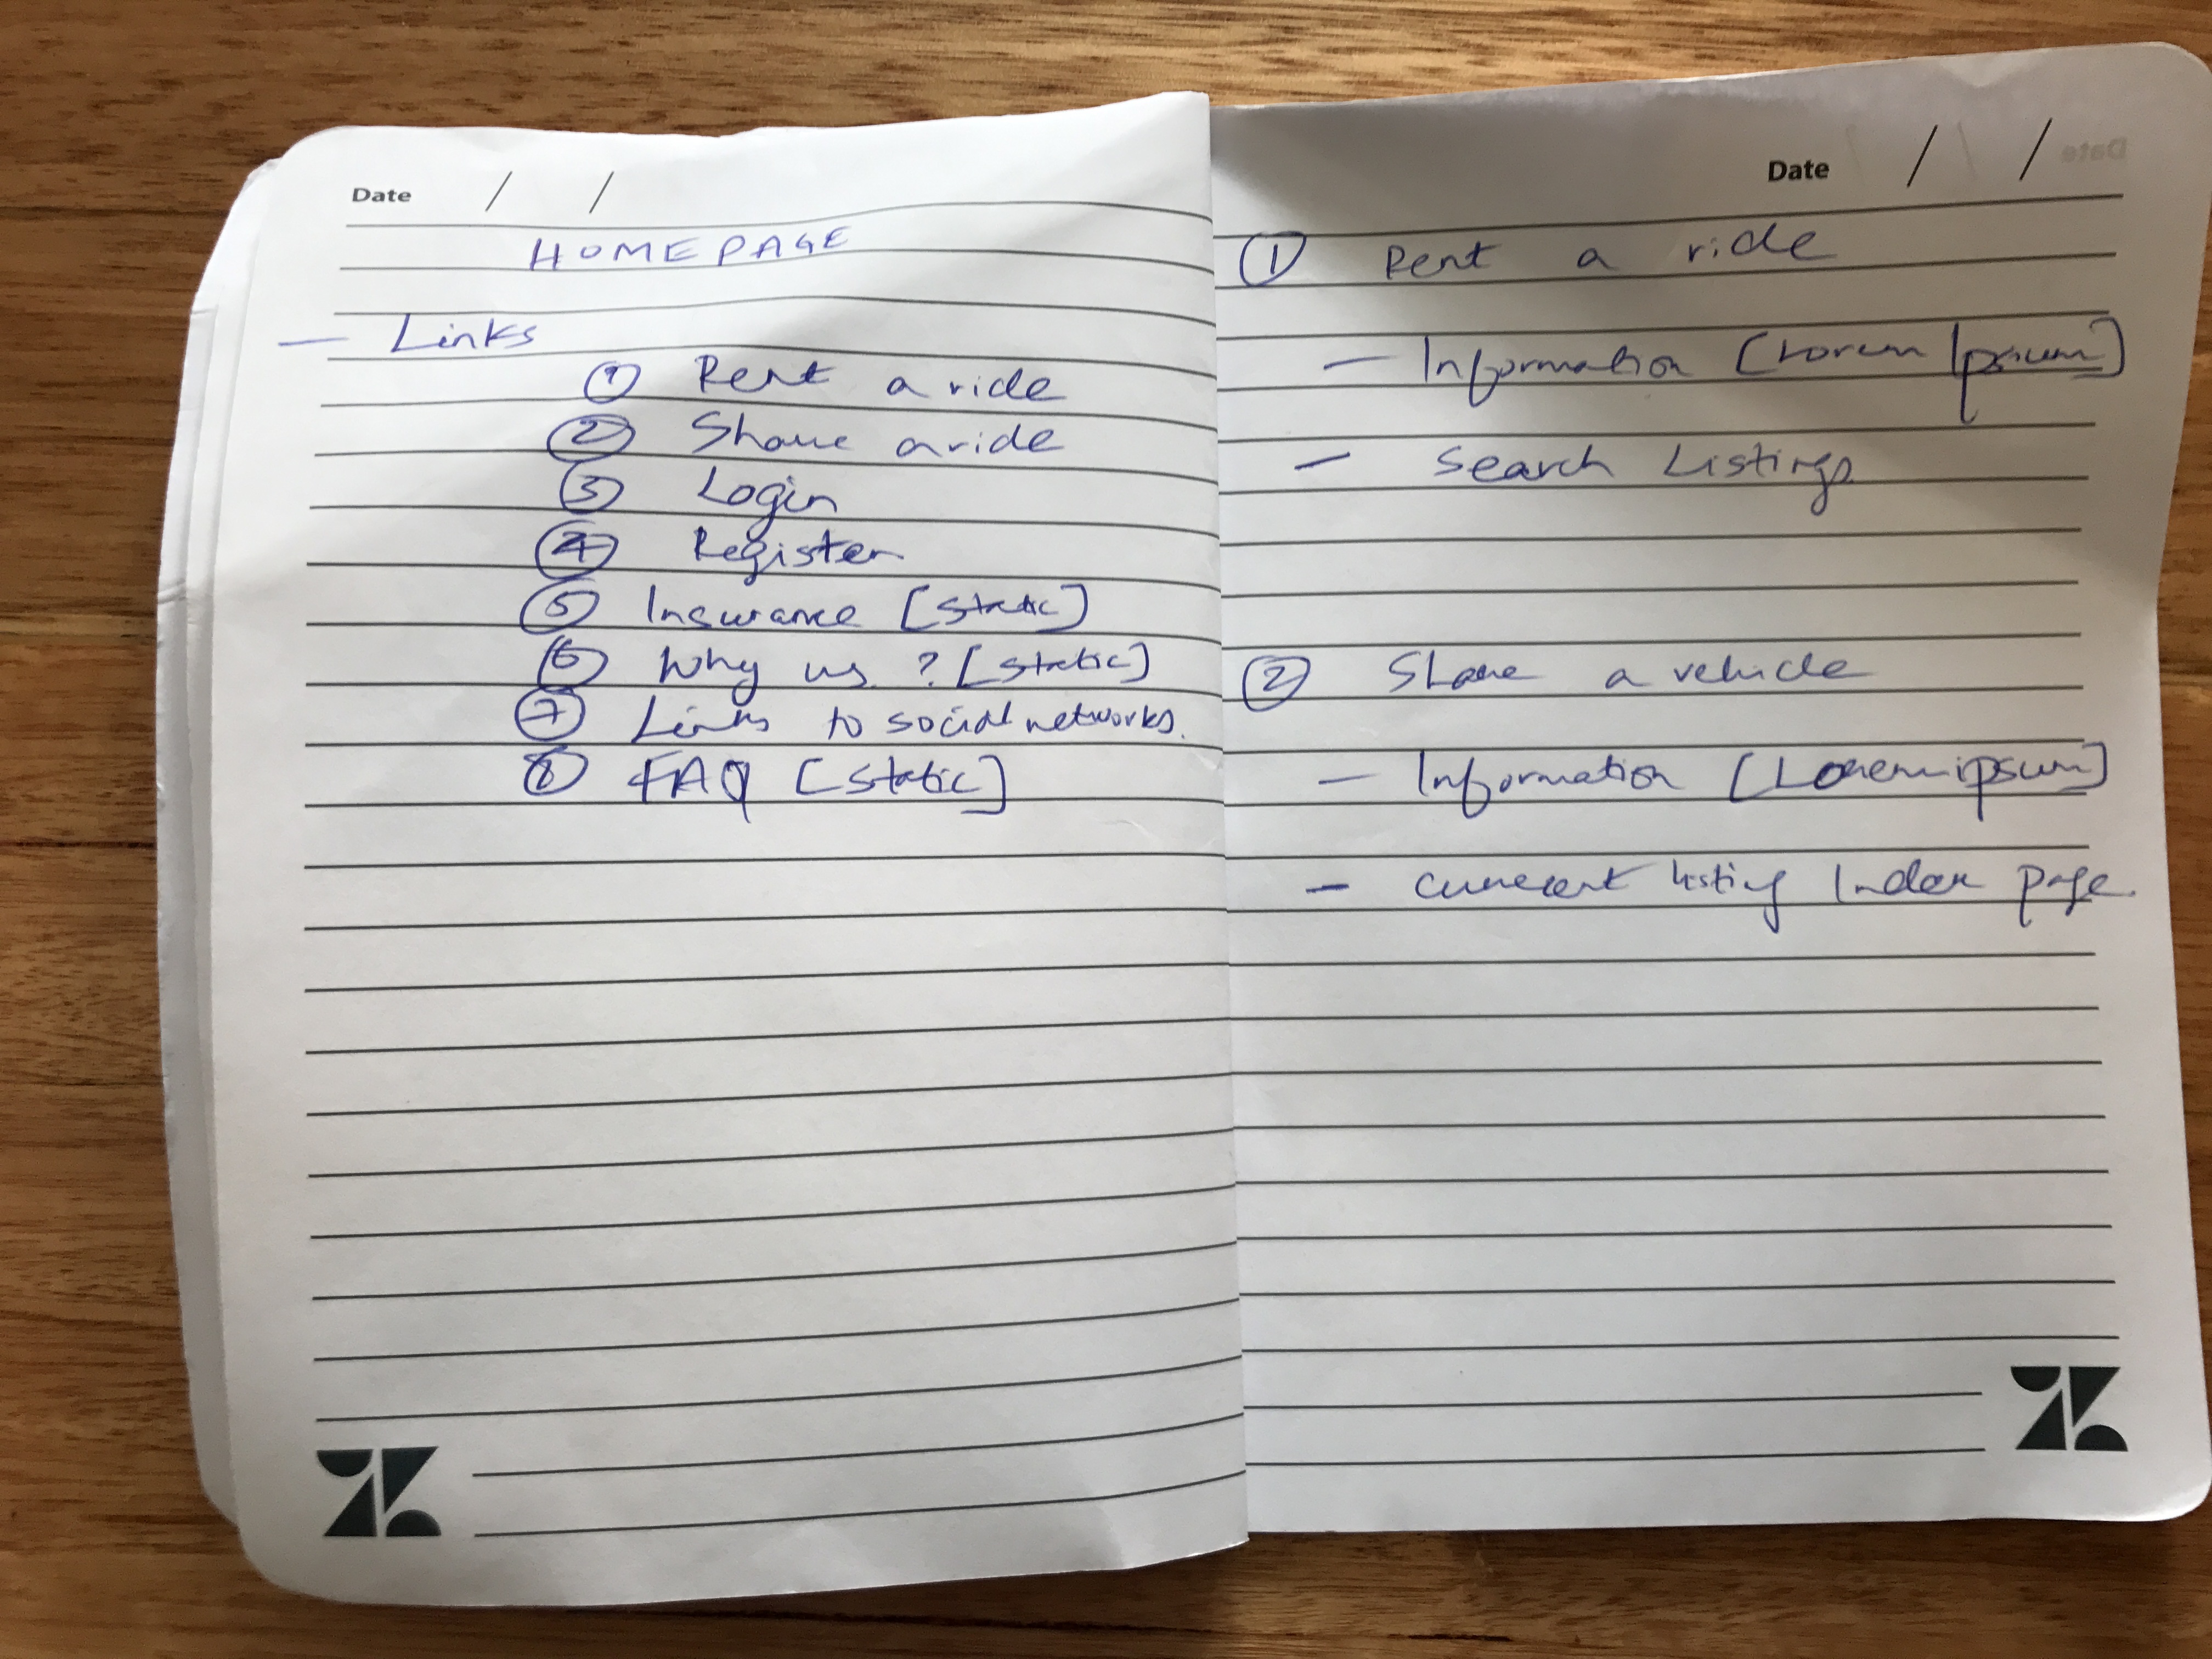 Date / /
HOMEPAGE
— Links
① Rent a ride
② Share a ride
③ Login
④ Register
⑤ Insurance [static]
⑥ Why us ? [static]
⑦ Links to social networks.
⑧ FAQ [static]
Date / /
① Rent a ride
— Information [Lorem Ipsum]
— Search Listings
② Share a vehicle
— Information [Lorem ipsum]
— current listing Index page.